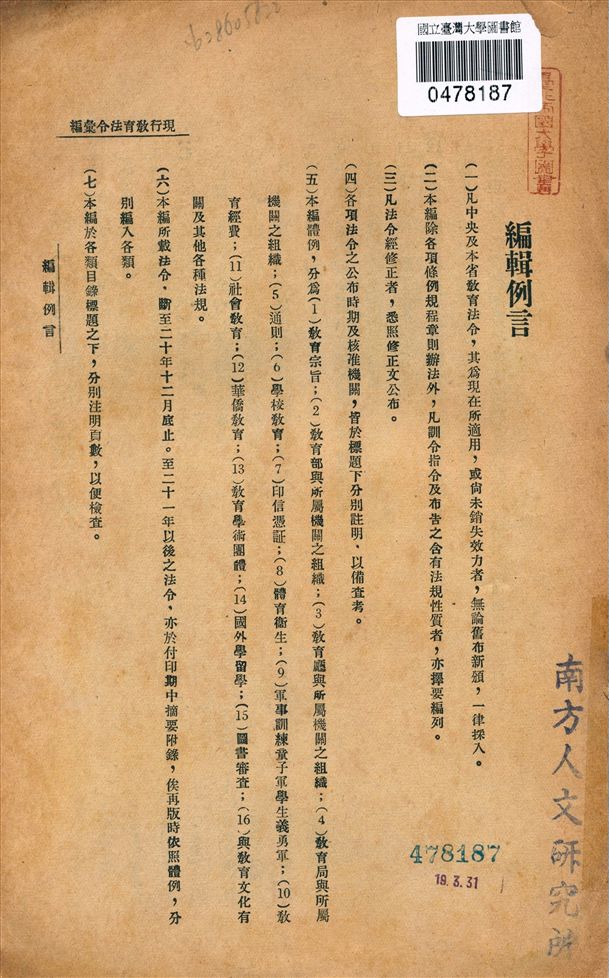 國立臺灣大學圖書館
0478187
現行敎育法令彙編
編輯例言
（一）凡中央及本省敎育法令，其爲現在所適用，或尙未銷失效力者，無論舊布新頒，一律採入。
（二）本編除各項條例規程章則辦法外，凡訓令指令及布吿之含有法規性質者，亦擇要編列。
（三）凡法令經修正者，悉照修正文公布。
（四）各項法令之公布時期及核准機關，皆於標題下分別註明，以備查考。
（五）本編體例，分爲（1）敎育宗旨；（2）敎育部與所屬機關之組織；（3）敎育廳與所屬機關之組織；（4）敎育局與所屬
機關之組織；（5）通則；（6）學校敎育；（7）印信憑証；（8）體育衞生；（9）軍事訓練童子軍學生義勇軍；（10）敎
育經費；（11）社會敎育；（12）華僑敎育；（13）敎育學術團體；（14）國外學留學；（15）圖書審查；（16）與敎育文化有
關及其他各種法規。
（六）本編所載法令，斷至二十年十二月底止。至二十一年以後之法令，亦於付印期中摘要附錄，俟再版時依照體例，分
別編入各類。
（七）本編於各類目錄標題之下，分別注明頁數，以便檢查。
編輯例言
南方人文研究所
478187
19.3.31